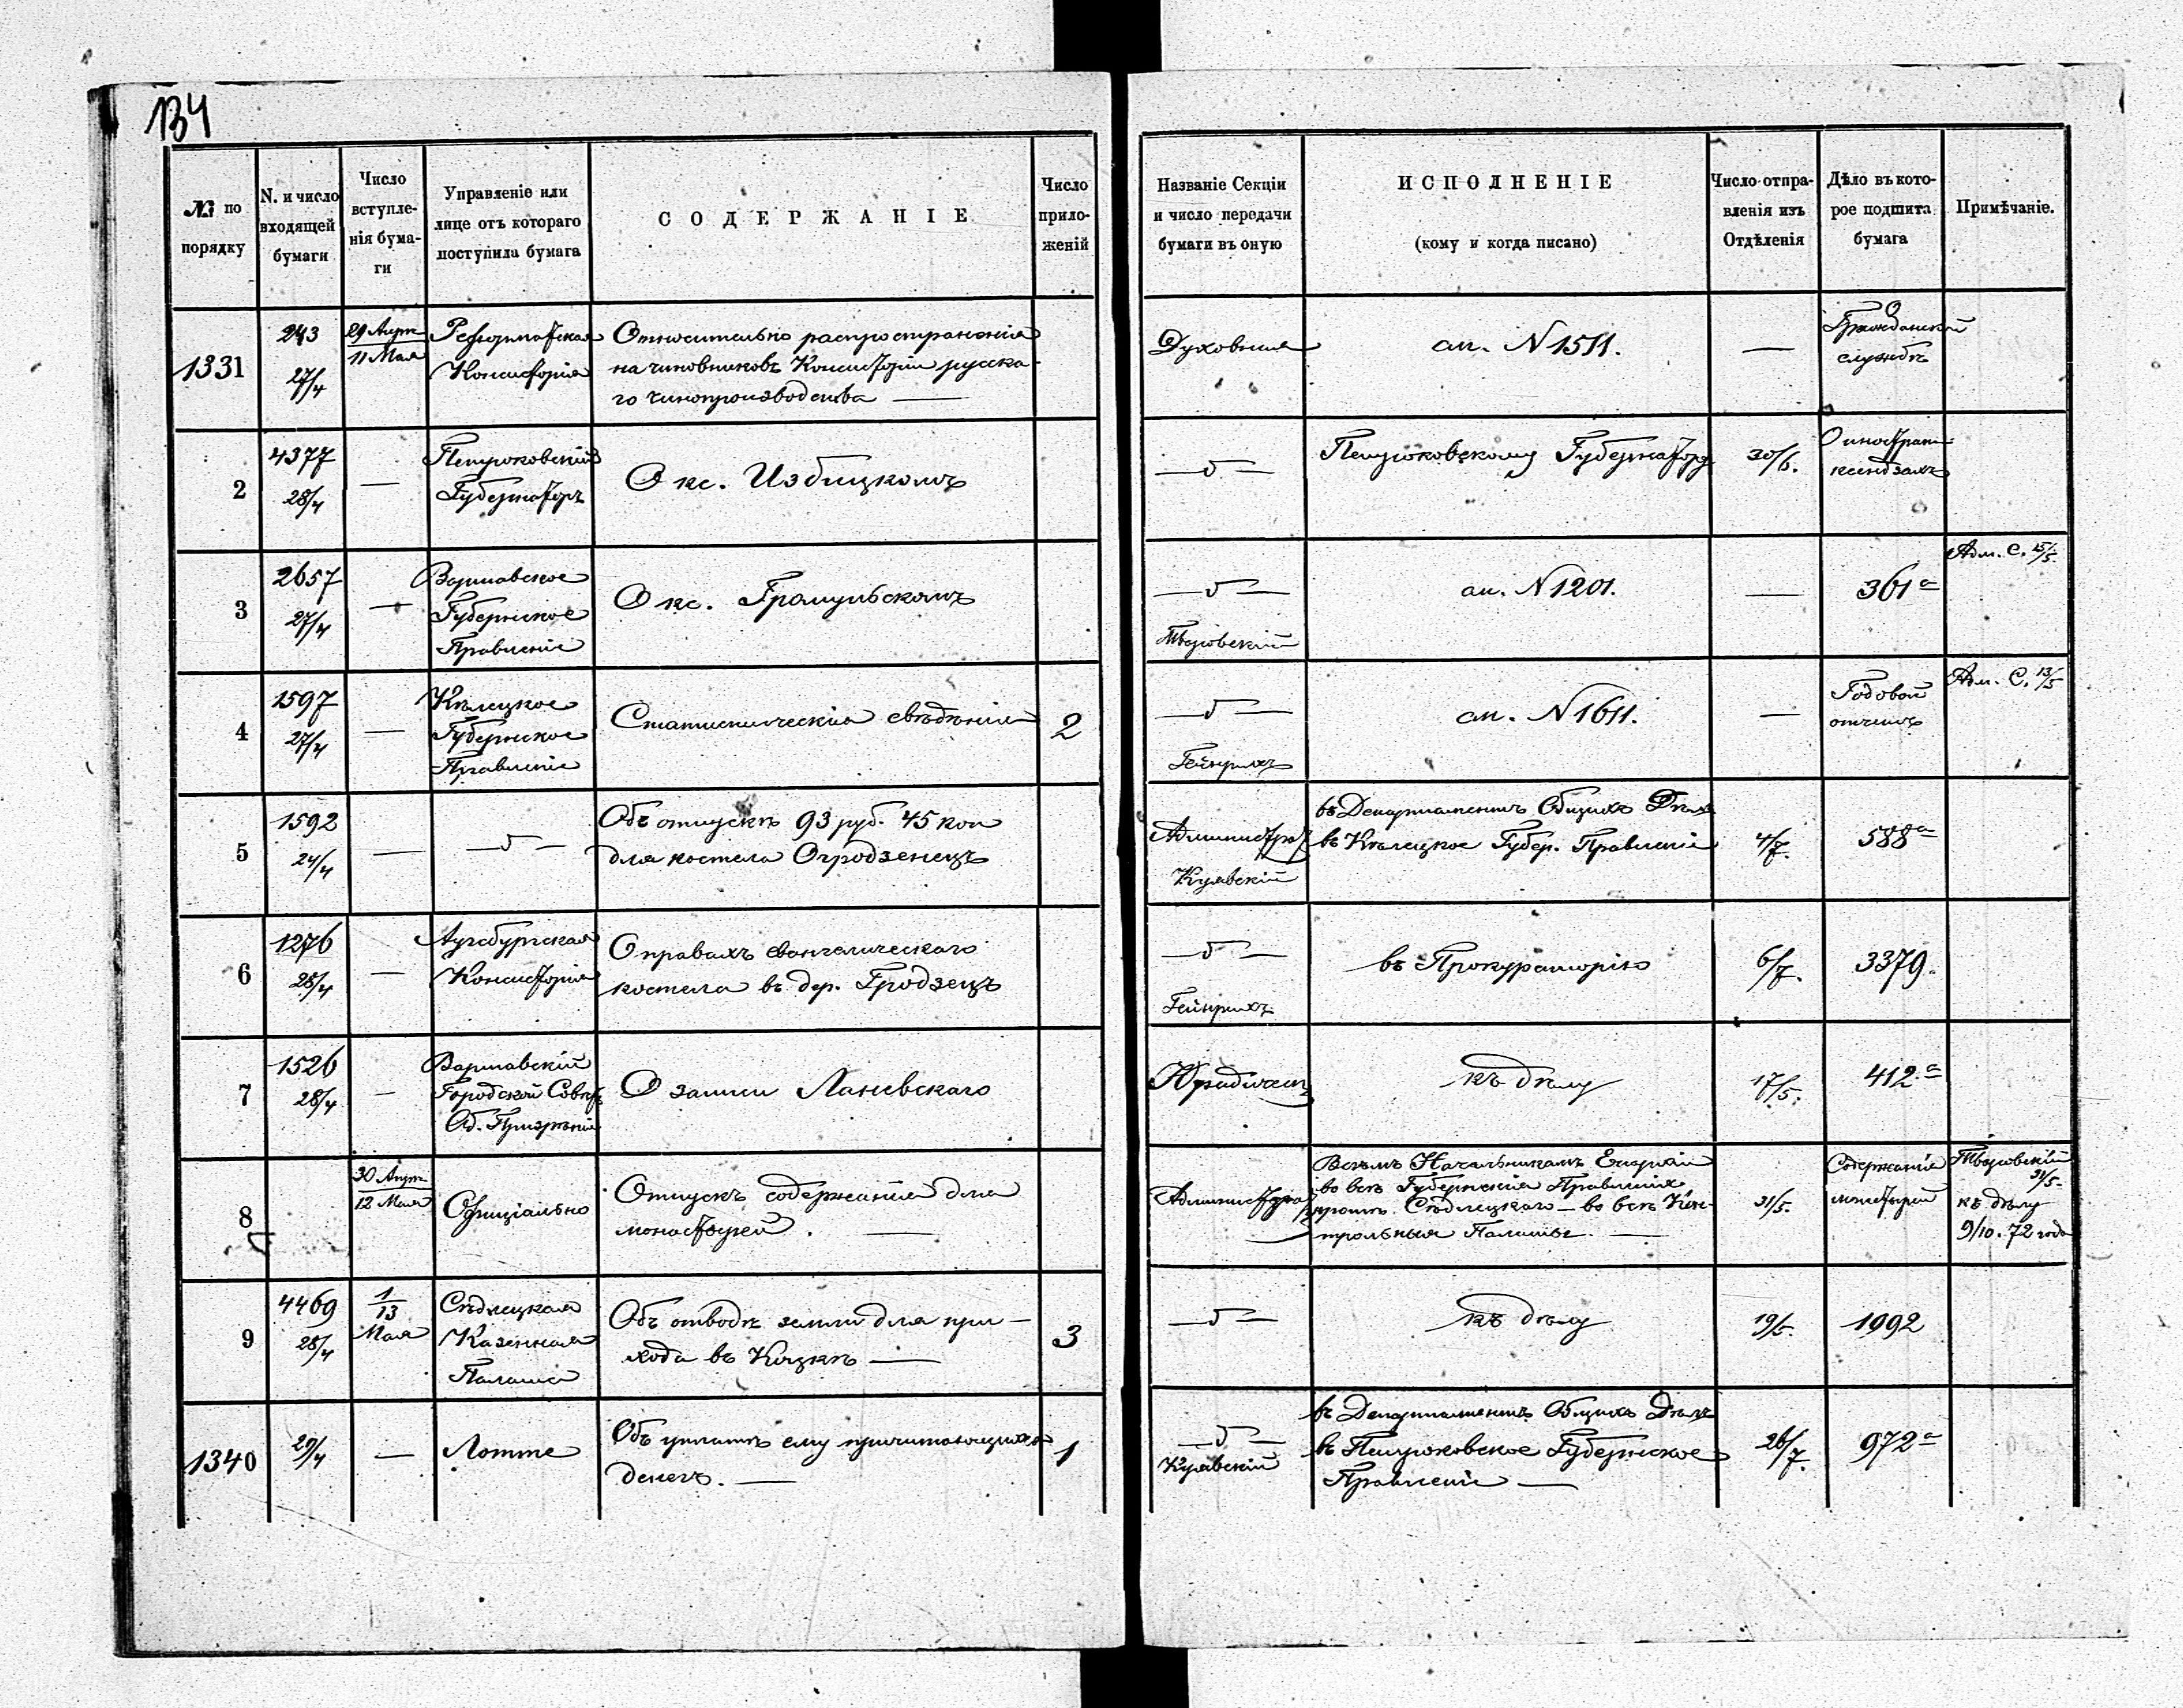 134
№ по порядку
N. и число входящей бумаги
Число вступле-нія бума-ги
Управленіе или лице отъ котораго поступила бумага
СОДЕРЖАНІЕ
Число прило-женій
Названіе Секціи и число передачи бумаги въ оную
ИСПОЛНЕНІЕ
(кому и когда писано)
Число отпра-вленія изъ Отдѣленія
Дѣло въ кото-рое подшита бумага
Примѣчаніе.
1331
243
27/4
29 Апр
11 Мая
Реформатская
Консисторія
Относительно распространенія
на чиновниковъ Консисторіи русска-
го чинопроизводства —
Духовная
ст. N 1511.
—
О
Гражданской
службѣ
2
4377
28/4
—
Петроковскій
Губернаторъ
О кс. Избицкомъ
Петроковскому Губернатору
30/6.
О иностран
ксендзахъ
3
2657
27/4
—
Варшавское
Губернское
Правленіе
О кс.
Твровскій
ст. N 1201.
—
361а
Адм. С. 15/5
4
1597
27/4
—
Кѣлецкое
Губернское
Правленіе
Статистическія свѣдѣнія
2
Гейнрихъ
ст. N 1611.
—
Годовой
отчетъ
Адм. С. 13/5
5
1592
24/4
—
Объ отпускѣ 93 руб. 45 коп
для костела Огродзенецъ
Администрат
Куявскій
въ Департаментъ Общихъ Дѣлъ
въ Кѣлецкое Губер. Правленіе
4/7.
588а
6
1276
28/4
—
Аугсбургская
Консисторія
О правахъ евангелическаго
костела въ дер. Гродзецъ
Гейнрихъ
въ Прокураторію
6/7.
3379.
7
1526
28/4
—
Варшавскій
Городской Совѣтъ
Об. Призрѣнія
О записи Ланевскаго
Юридическ
къ дѣлу
17/5.
412.а
8
30 Апр
12 Мая
Офиціально
Отпускъ содержанія для
монастырей. —
Администра
Всѣмъ Начальникамъ Епархій
во всѣ Губернскія Правленія
кромѣ Сѣдлецкаго — во всѣ Кон-
трольныя Палаты. —
31/5.
Содержанія
монастырей
31/5.
къ дѣлу
9/10. 72 года
9
4469
28/4
1
13
Мая
Сѣдлецкая
Казенная
Палата
Объ отводѣ земли для при-
хода въ Коцкѣ —
3
къ дѣлу
19/5.
1992
1340
29/4
—
Лотте
Объ уплатѣ ему причитающихся
денегъ. —
1
Куявскій
въ Департаментъ Общихъ Дѣлъ
въ Петроковское Губернское
Правленіе —
26/7.
972а